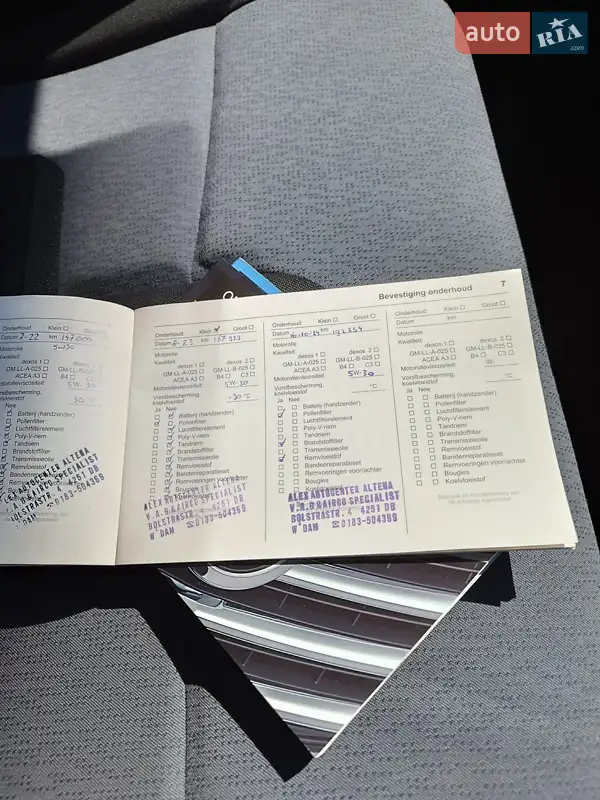 auto RIA .com
Bevestiging onderhoud 7
Onderhoud: Klein ☐
Datum 7-22 km 147000
Motorolie
Kwaliteit:
dexos 1 ☐ dexos 2
GM-LL-A-025 ☐
ACEA A3 ☐ B4 ☐
Motorolieviscositeit 5W-30
Vorstbescherming, koelvloeistof -30 °C
Nee
Batterij (handzender)
Pollenfilter
Luchtfilterelement
Poly-V-riem
Tandriem
Brandstoffilter
Transmissieolie
Remvloeistof
ALEX AUTOCENTER ALTENA
V.A.G & AIRCO SPECIALIST
BOLSTRASTR. 4 4251 DB
W'DAM ☎0183-504369
Onderhoud: Klein ☑ Groot ☐
Datum km 167
Motorolie
Kwaliteit:
dexos 1 ☐ dexos 2 ☐
GM-LL-A-025 ☐ GM-LL-B-025 ☐
ACEA A3 ☐ B4 ☐ C3 ☐
Motorolieviscositeit 5W-30
Vorstbescherming, koelvloeistof -30 °C
Ja Nee
Batterij (handzender)
Pollenfilter
Luchtfilterelement
Poly-V-riem
Tandriem
Brandstoffilter
Transmissieolie
Remvloeistof
Bandenreparatieset
Remvoeringen voor/achter
Bougies
ALEX AUTOCENTER ALTENA
V.A.G & AIRCO SPECIALIST
BOLSTRASTR. 4 4251 DB
W'DAM ☎0183-504369
Onderhoud: Klein ☐ Groot ☐
Datum km 192354
Motorolie
Kwaliteit:
dexos 1 ☐ dexos 2 ☐
GM-LL-A-025 ☐ GM-LL-B-025 ☐
ACEA A3 ☐ B4 ☐ C3 ☐
Motorolieviscositeit 5W-30
Vorstbescherming, koelvloeistof °C
Ja Nee
Batterij (handzender)
Pollenfilter
Luchtfilterelement
Poly-V-riem
Tandriem
Brandstoffilter
Transmissieolie
Remvloeistof
Bandenreparatieset
Remvoeringen voor/achter
Bougies
Koelvloeistof
ALEX AUTOCENTER ALTENA
V.A.G & AIRCO SPECIALIST
BOLSTRASTR. 4 4251 DB
W'DAM ☎0183-504369
Onderhoud: Klein ☐ Groot ☐
Datum km
Motorolie
Kwaliteit:
dexos 1 ☐ dexos 2 ☐
GM-LL-A-025 ☐ GM-LL-B-025 ☐
ACEA A3 ☐ B4 ☐ C3 ☐
Motorolieviscositeit W-
Vorstbescherming, koelvloeistof °C
Ja Nee
Batterij (handzender)
Pollenfilter
Luchtfilterelement
Poly-V-riem
Tandriem
Brandstoffilter
Transmissieolie
Remvloeistof
Bandenreparatieset
Remvoeringen voor/achter
Bougies
Koelvloeistof